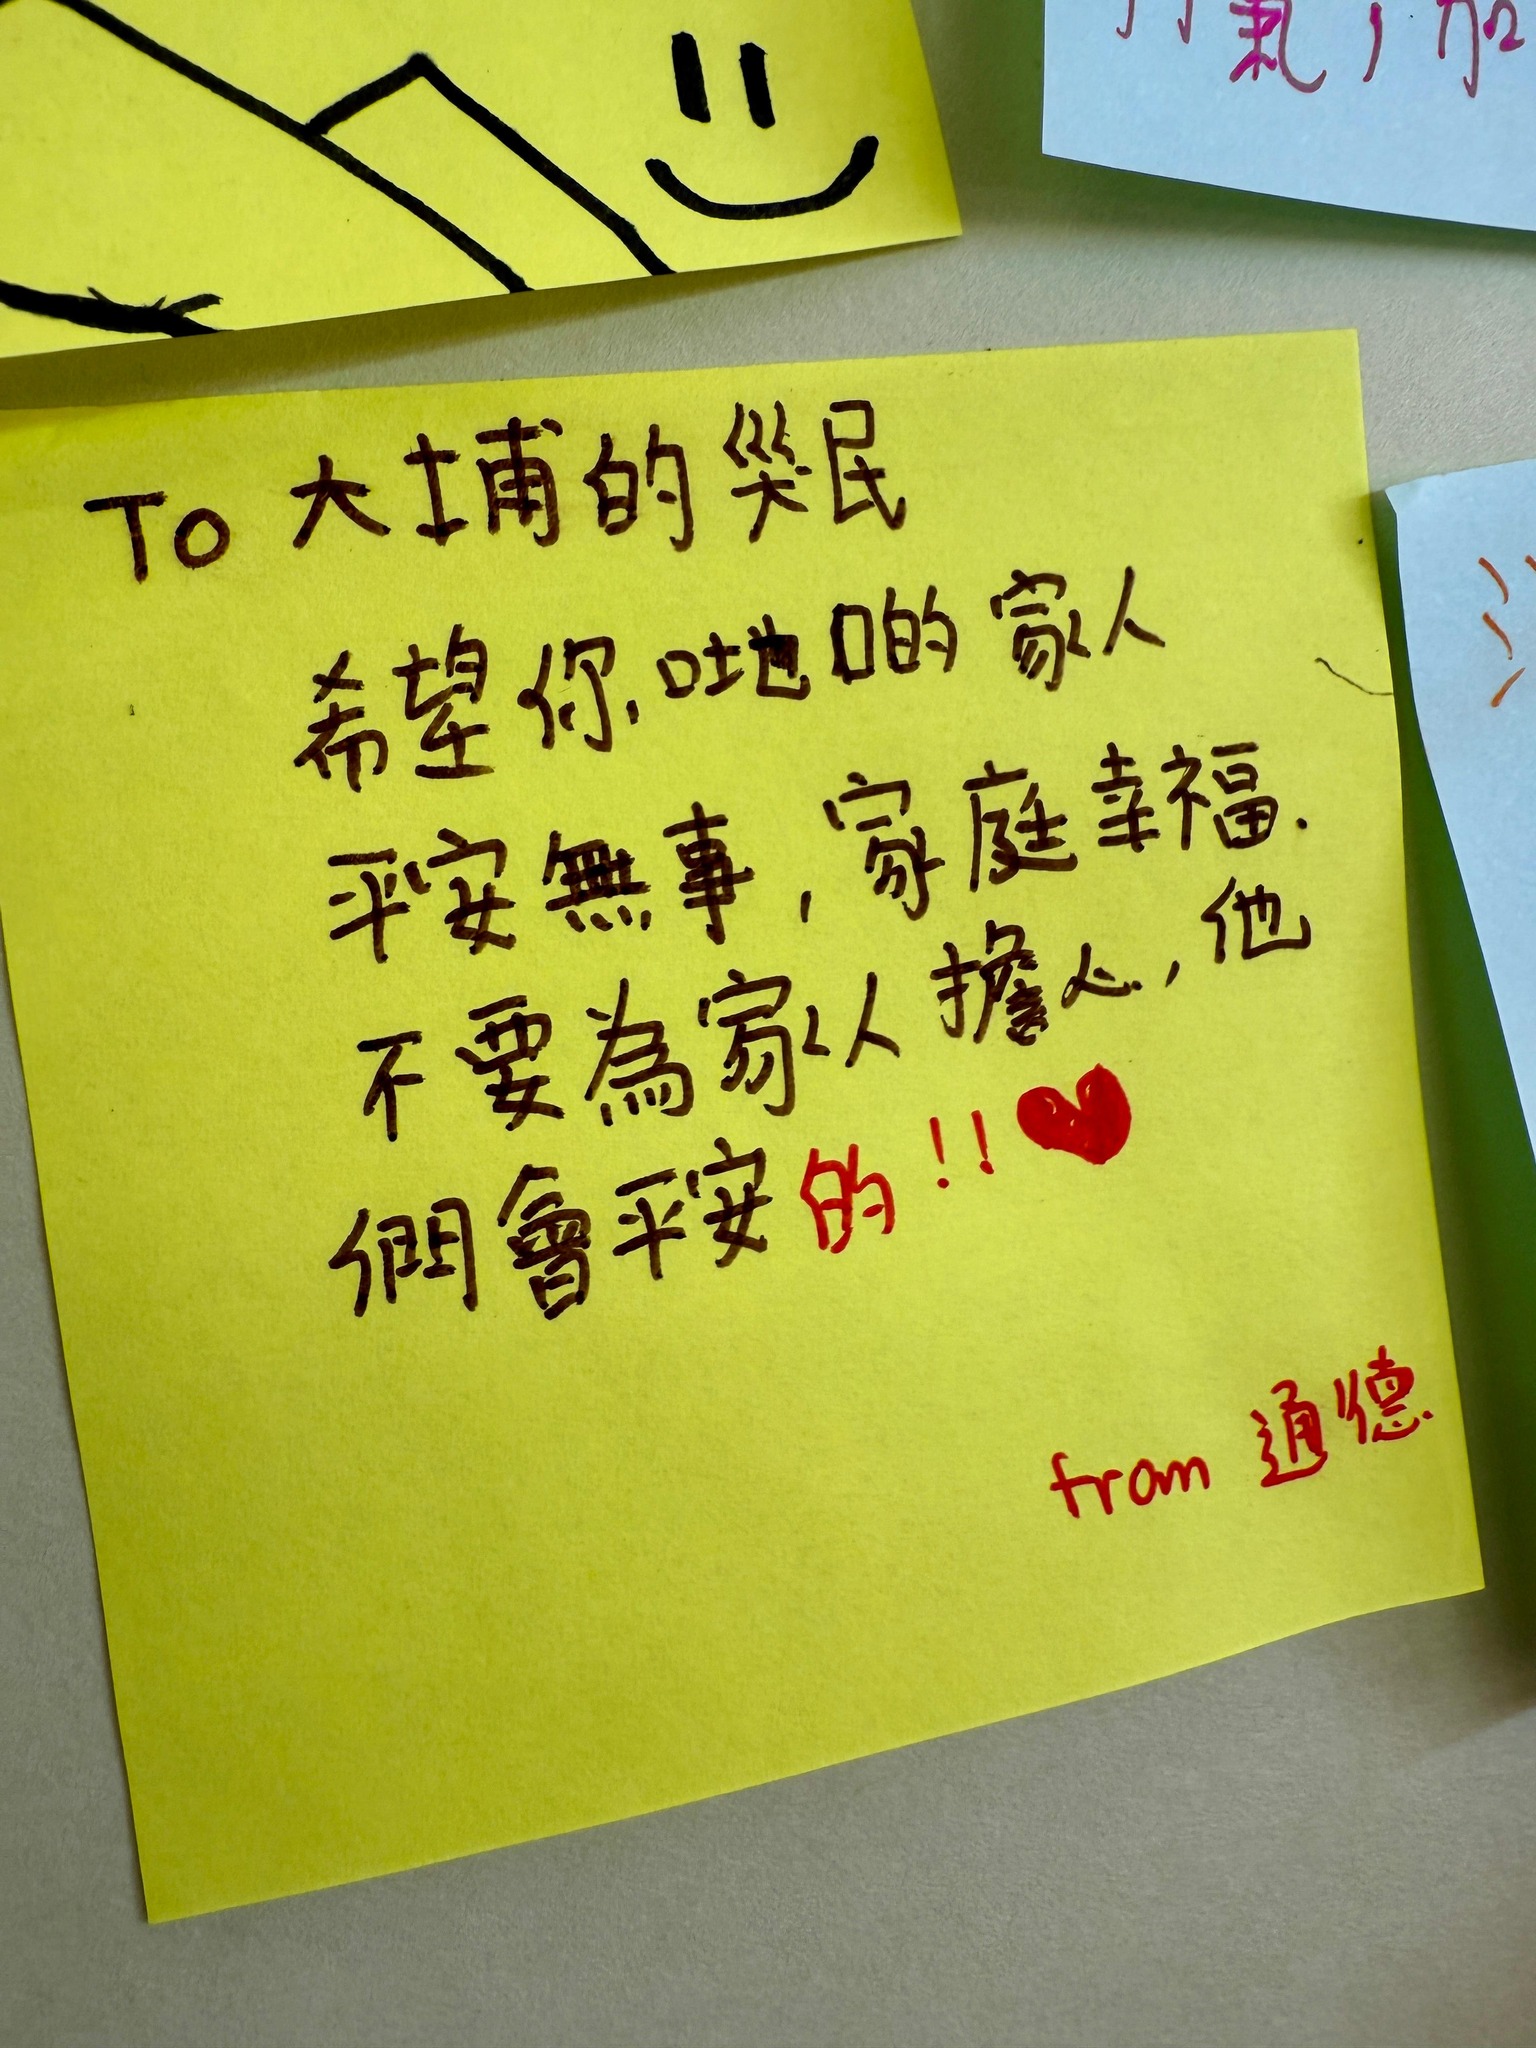 氣，加
To 大埔的災民
希望你哋啲家人
平安無事，家庭幸福.
不要為家人擔心，他
們會平安的!!
from 通德